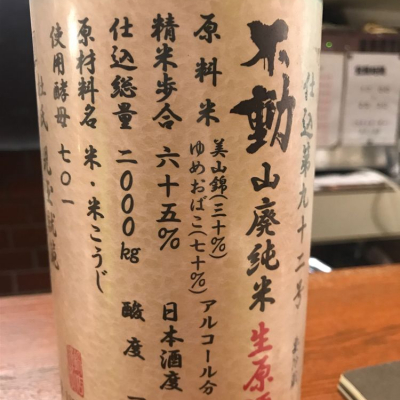 仕込第九十二号
不動 山廃純米 生原
原料米 美山錦(三十%)
ゆめおばこ(七十%) アルコール分
精米歩合 六十五% 日本酒度
仕込総量 二〇〇〇kg 酸度
原材料名 米・米こうじ
使用酵母 七〇一